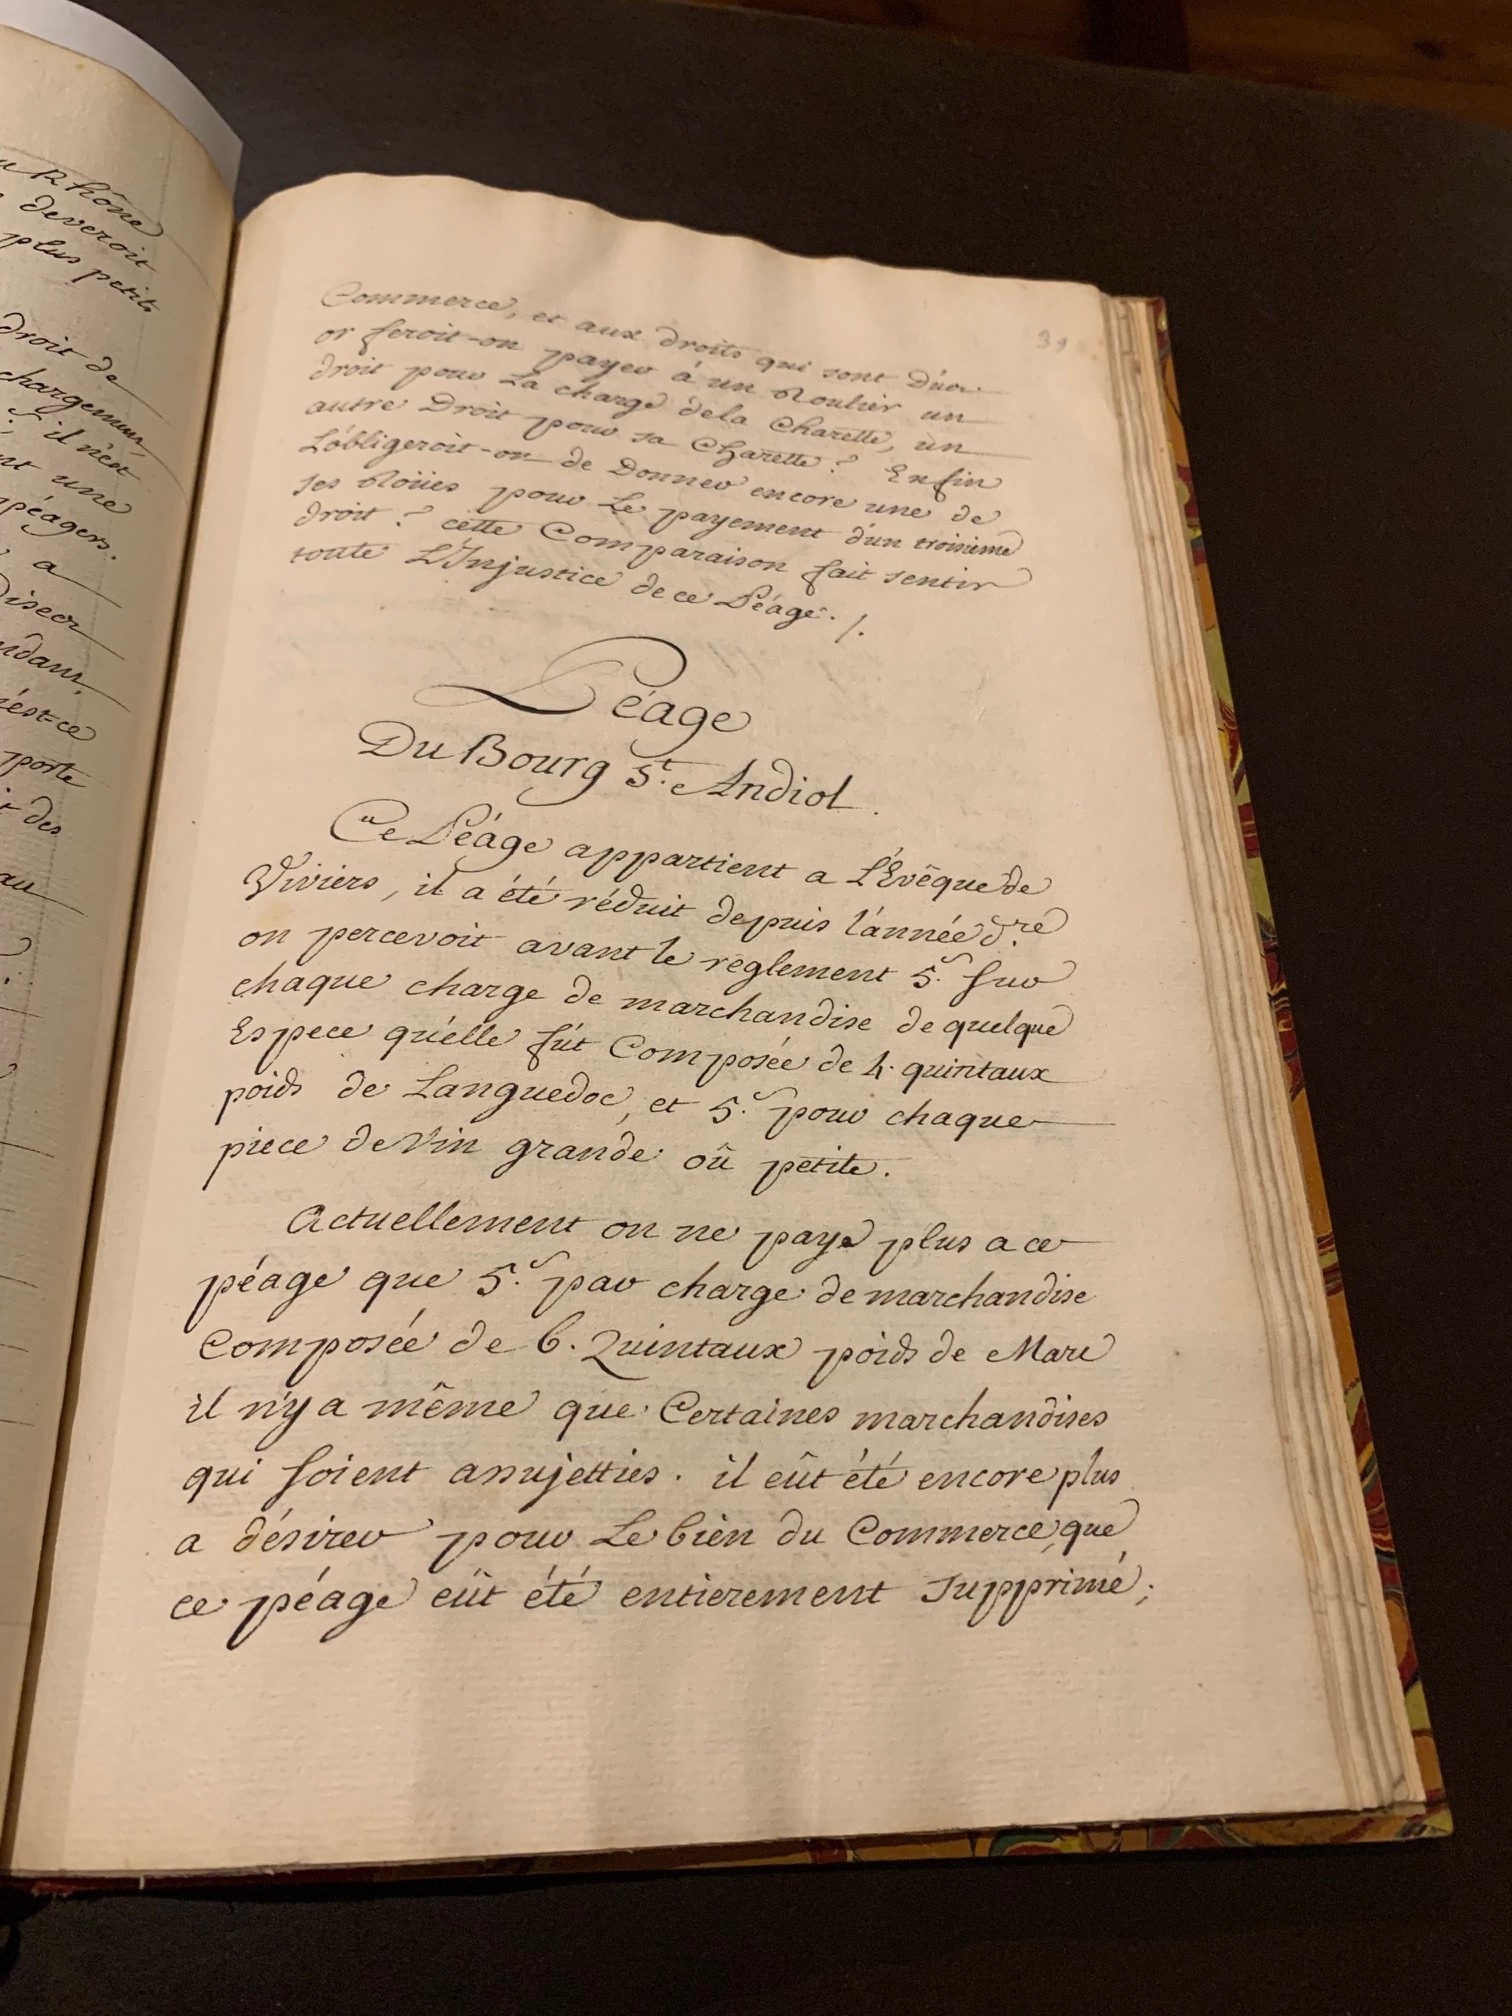 u Rhône
deveroit
plus petits
droit de
chargemens,
? il n'est
nt une
péagers.
a
ndans,
est-ce
porte
t des
au
39
Commerce, et aux droits qui sont dûs.
or feroit-on payer à un Roulier un
droit pour La charge dela Charette, un
autre Droit pour sa Charette? Enfin
L'obligeroit-on de Donner encore une de
ses Roües pour Le payement d'un troisieme
droit? cette Comparaison fait sentir
toute L'Injustice de ce Péage./.
Péage
Du Bourg St. Andiol.
Ce Péage appartient a L'Evêque de
Viviers, il a été réduit depuis l'année dre.
on percevoit avant le reglement 5.s sur
chaque charge de marchandise de quelque
Espece qu'elle fût Composée de 4. quintaux
poids de Languedoc, et 5.s pour chaque
piece de Vin grande oû petite.
Actuellement on ne paye plus a ce
péage que 5.s par charge de marchandise
Composée de 6. Quintaux poids de Marc
il n'y a même que Certaines marchandises
qui soient assujetties. il eût été encore plus
a désirer pour Le bien du Commerce, que
ce péage eût été entierement supprimé;